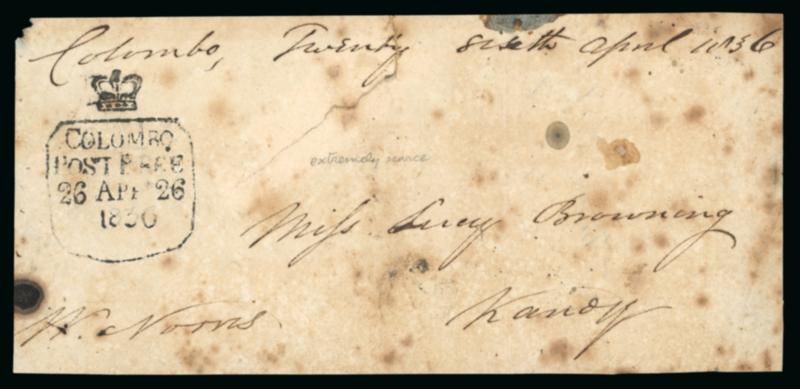 Colombo, Twenty sixth April 1836
COLOMBO
POST FREE
26 APR 26
1836
extremely scarce
Miss Lucy Browning
W. Norris
Kandy